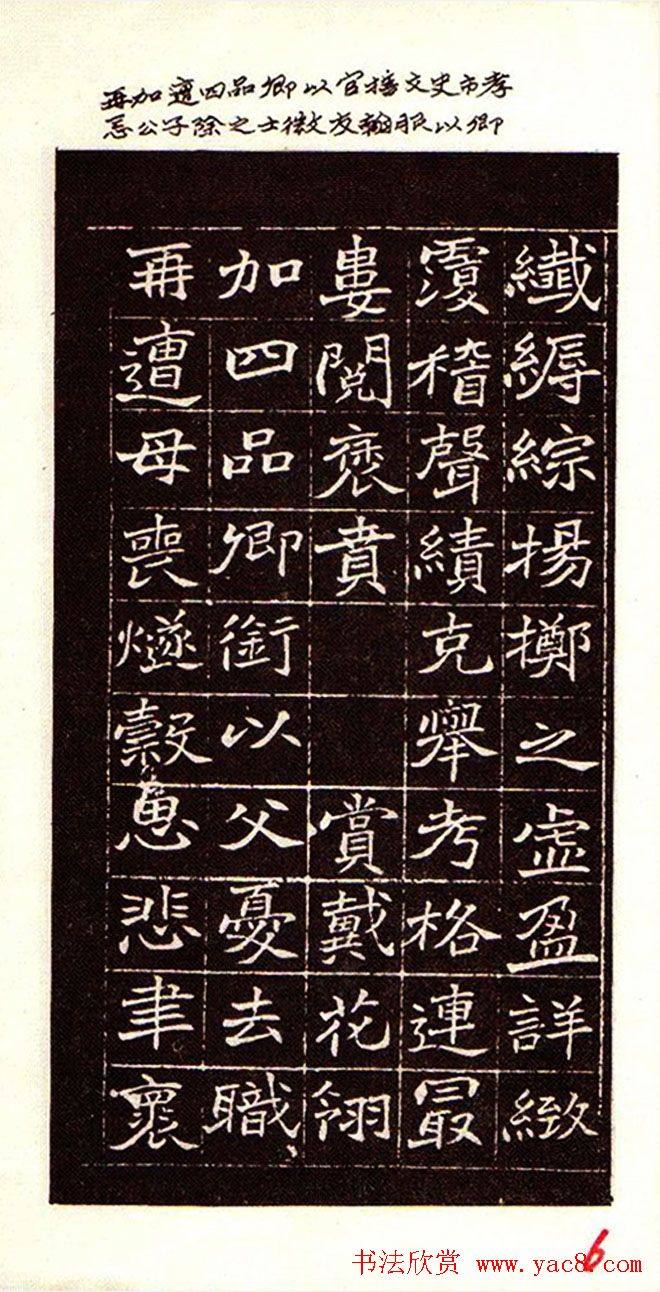 再加遭四品卿以官 文史市孝
公子除之士微友 服以卿
纖縟綜揚擲之虛盈詳緻
覆稽聲績克舉考格連最
婁閱褒賁 賞戴花翎
加四品卿銜以父憂去職
再遭母喪燧穀 悲聿褱
6
书法欣赏 www.yac8.com